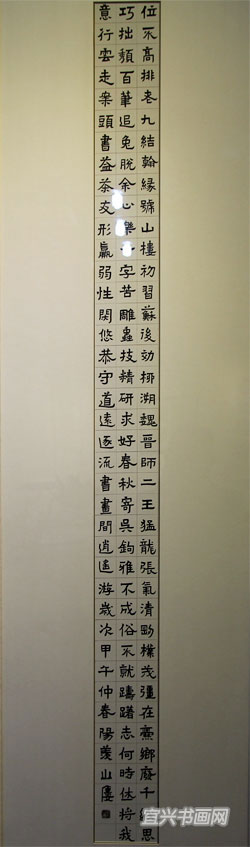 位不高排老九結翰緣號山樓初習蘇後効柳溯魏晉師二王猛龍張氣清勁樸茂彊在燕鄉廢千思
巧拙頻百筆追兔脫余心樂字苦雕蟲技精研求好春秋寄吳鉤雅不成俗不就躊躇志何時休將我
意行雲走案頭書益茶友形羸弱性閑悠恭守道遠逐流書畫間逍遙游歲次甲午仲春陽羨山廔
宜兴书画网